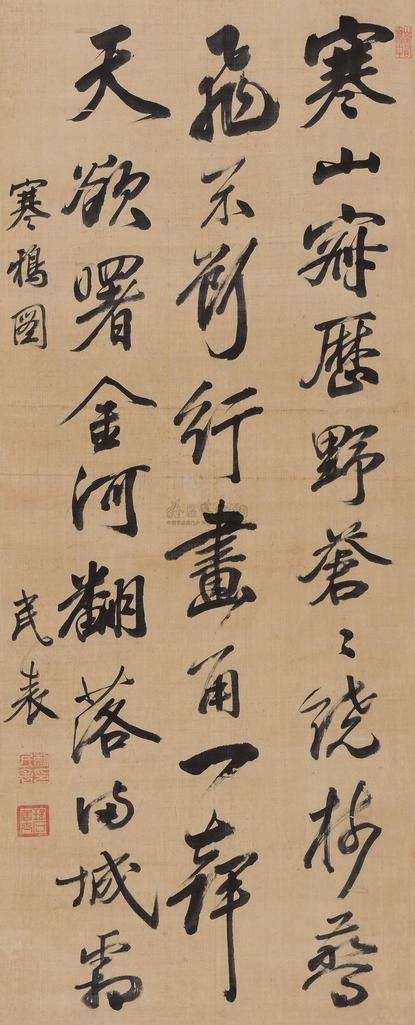 寒山寂歷野蒼〻繞樹驚
飛不斷行畫角一聲
天欲曙金河翻落滿城霜
寒鴉圖 民表